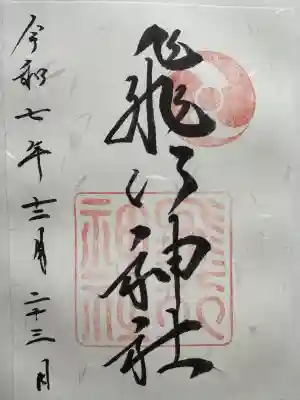 飛行神社
令和七年十二月二十三日